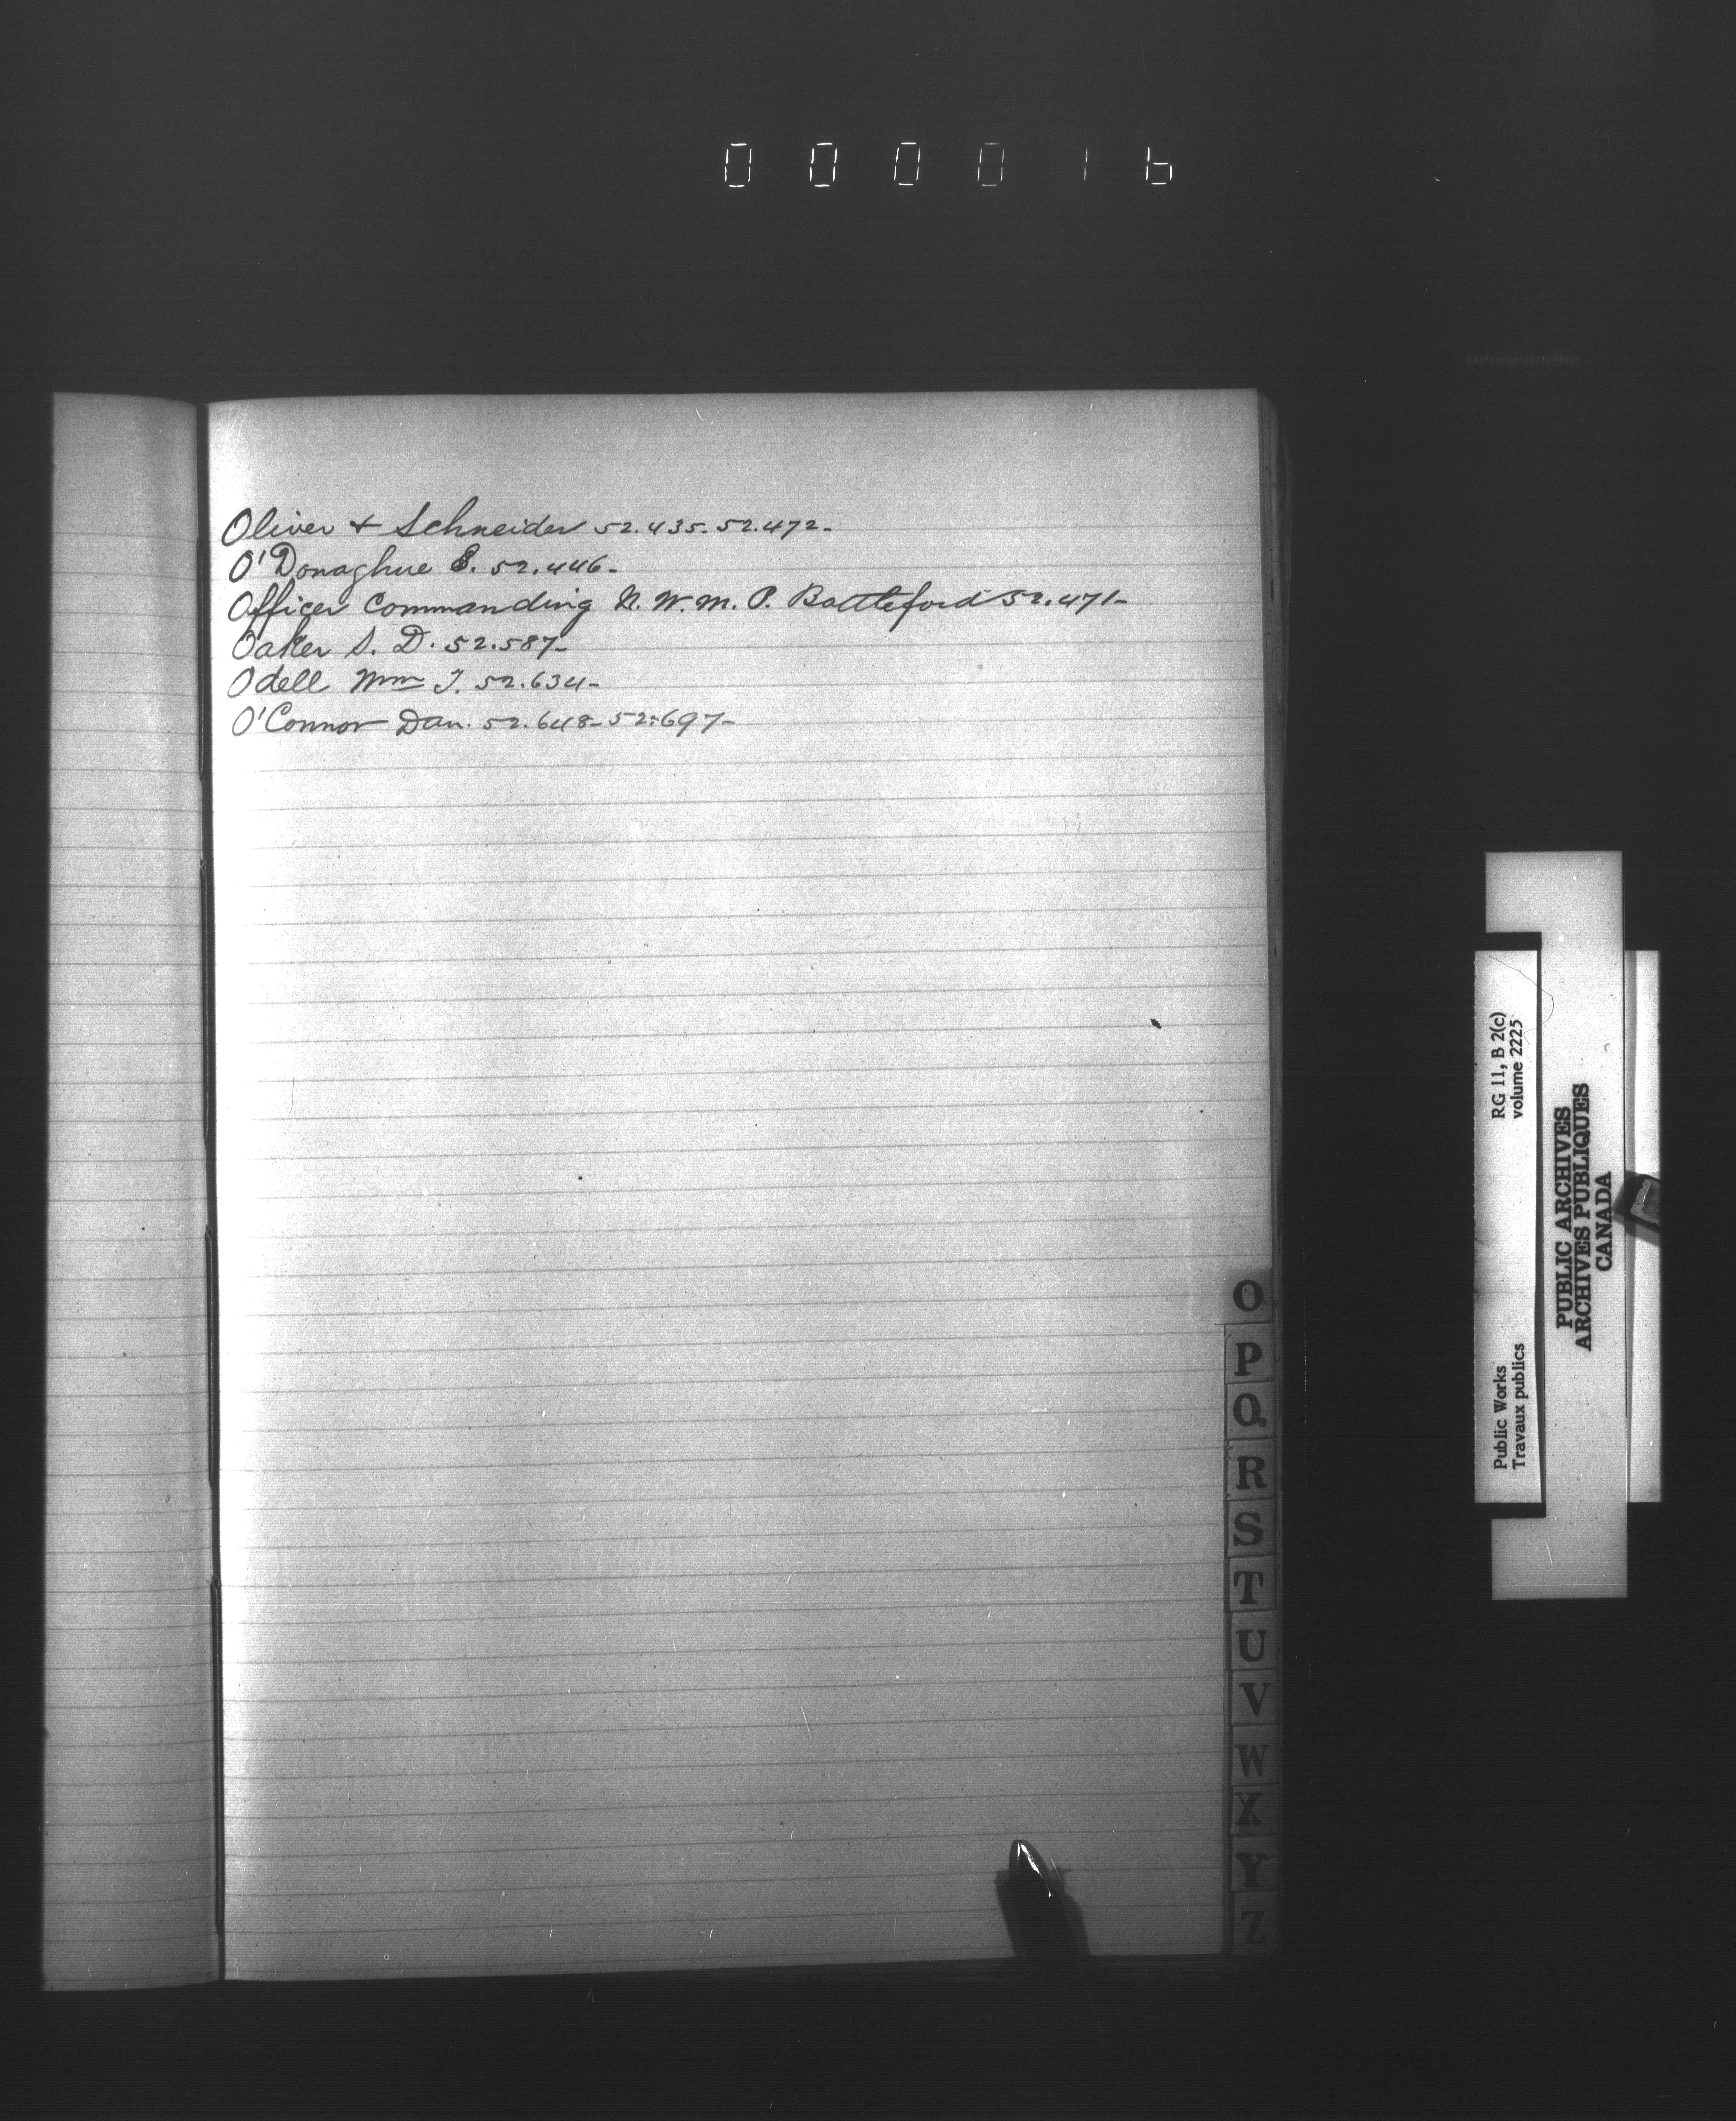 000016
Oliver + Schneider 52.435. 52.472-
O'Donaghue E. 52.446-
Officer Commanding N. W. M. P. Battleford 52.471-
Oaker S. D. 52.587-
Odell Wm T. 52.634-
O'Connor Dan. 52.648- 52.697-
O
P
Q
R
S
T
U
V
W
X
Y
Z
RG 11, B 2(c)
volume 2225
Public Works
Travaux publics
PUBLIC ARCHIVES
ARCHIVES PUBLIQUES
CANADA